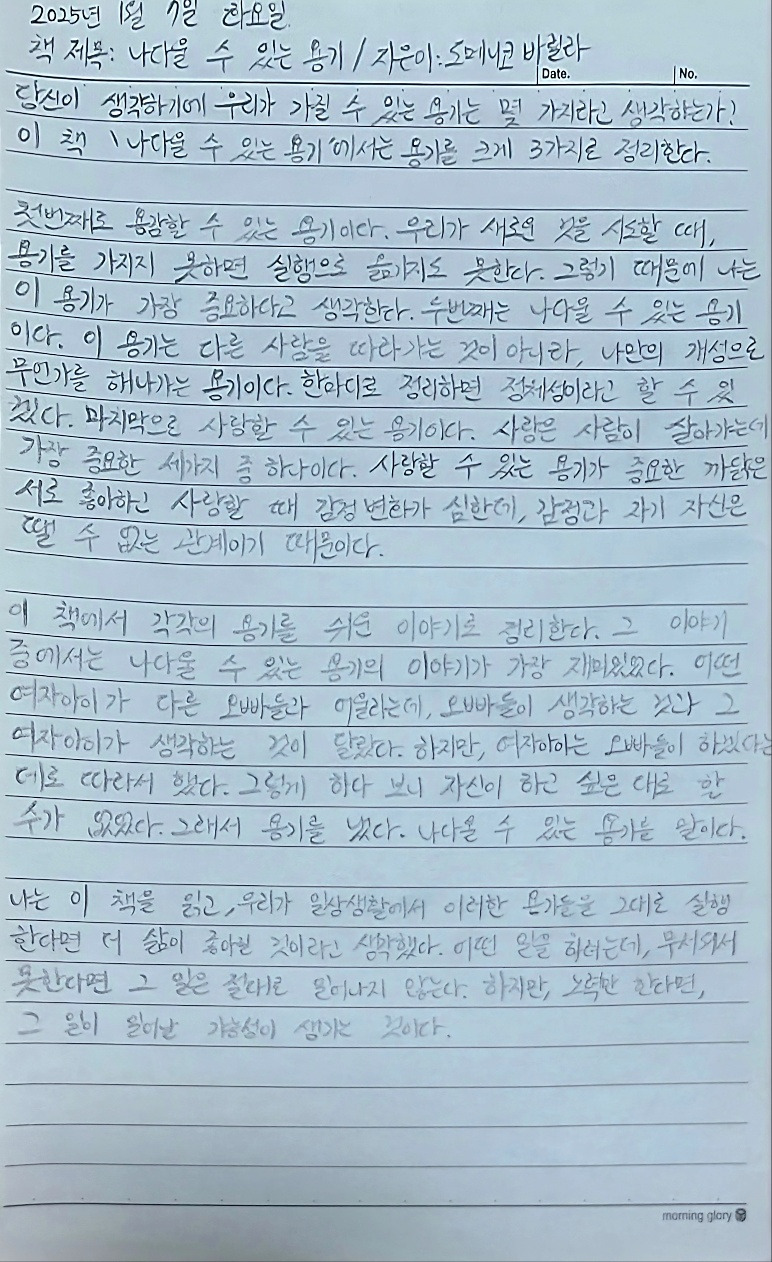 2025년 1월 7일 화요일.
책 제목: 나다울 수 있는 용기 / 지은이: 도메니코 바릴라
Date. No.
당신이 생각하기에 우리가 가질 수 있는 용기는 몇 가지라고 생각하는가?
이 책 '나다울 수 있는 용기'에서는 용기를 크게 3가지로 정리한다.
첫번째로 용감할 수 있는 용기이다. 우리가 새로운 것을 시도할 때,
용기를 가지지 못하면 실행으로 옮기지도 못한다. 그렇기 때문에 나는
이 용기가 가장 중요하다고 생각한다. 두번째는 나다울 수 있는 용기
이다. 이 용기는 다른 사람을 따라가는 것이 아니라, 나만의 개성으로
무언가를 해나가는 용기이다. 한마디로 정리하면 정체성이라고 할 수 있
겠다. 마지막으로 사랑할 수 있는 용기이다. 사랑은 사람이 살아가는데
가장 중요한 세가지 중 하나이다. 사랑할 수 있는 용기가 중요한 까닭은
서로 좋아하고 사랑할 때 감정 변화가 심한데, 감정과 자기 자신은
뗄 수 없는 관계이기 때문이다.
이 책에서 각각의 용기를 쉬운 이야기로 정리한다. 그 이야기
중에서는 나다울 수 있는 용기의 이야기가 가장 재미있었다. 어떤
여자아이가 다른 오빠들과 어울리는데, 오빠들이 생각하는 것과 그
여자아이가 생각하는 것이 달랐다. 하지만, 여자아이는 오빠들이 하겠다는
데로 따라서 했다. 그렇게 하다 보니 자신이 하고 싶은 대로 할
수가 없었다. 그래서 용기를 냈다. 나다울 수 있는 용기를 말이다.
나는 이 책을 읽고, 우리가 일상생활에서 이러한 용기들을 그대로 실행
한다면 더 삶이 좋아질 것이라고 생각했다. 어떤 일을 하려는데, 무서워서
못한다면 그 일은 절대로 일어나지 않는다. 하지만, 노력만 한다면,
그 일이 일어날 가능성이 생기는 것이다.
morning glory